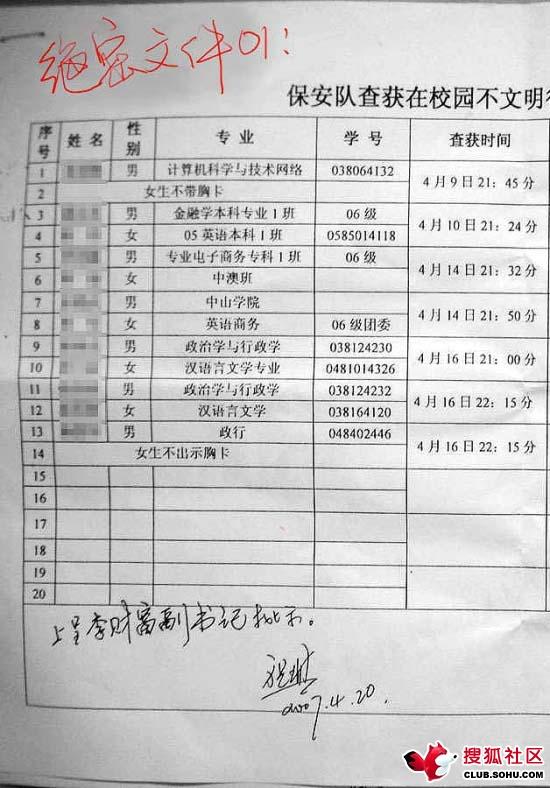 绝密文件01：
保安队查获在校园不文明行
序号 姓名 性别 专业 学号 查获时间
1 男 计算机科学与技术网络 038064132 4月9日21：45分
2 女生不带胸卡
3 男 金融学本科专业1班 06级 4月10日21：24分
4 女 05英语本科1班 0585014118
5 男 专业电子商务专科1班 06级 4月14日21：32分
6 女 中澳班
7 男 中山学院 4月14日21：50分
8 女 英语商务 06级团委
9 男 政治学与行政学 038124230 4月16日21：00分
10 女 汉语言文学专业 0481014326
11 男 政治学与行政学 038124232 4月16日22：15分
12 女 汉语言文学 038164120
13 男 政行 048402446 4月16日22：15分
14 女生不出示胸卡
15
16
17
18
19
20
上呈李财富副书记批示。
2007.4.20.
搜狐社区
CLUB.SOHU.COM